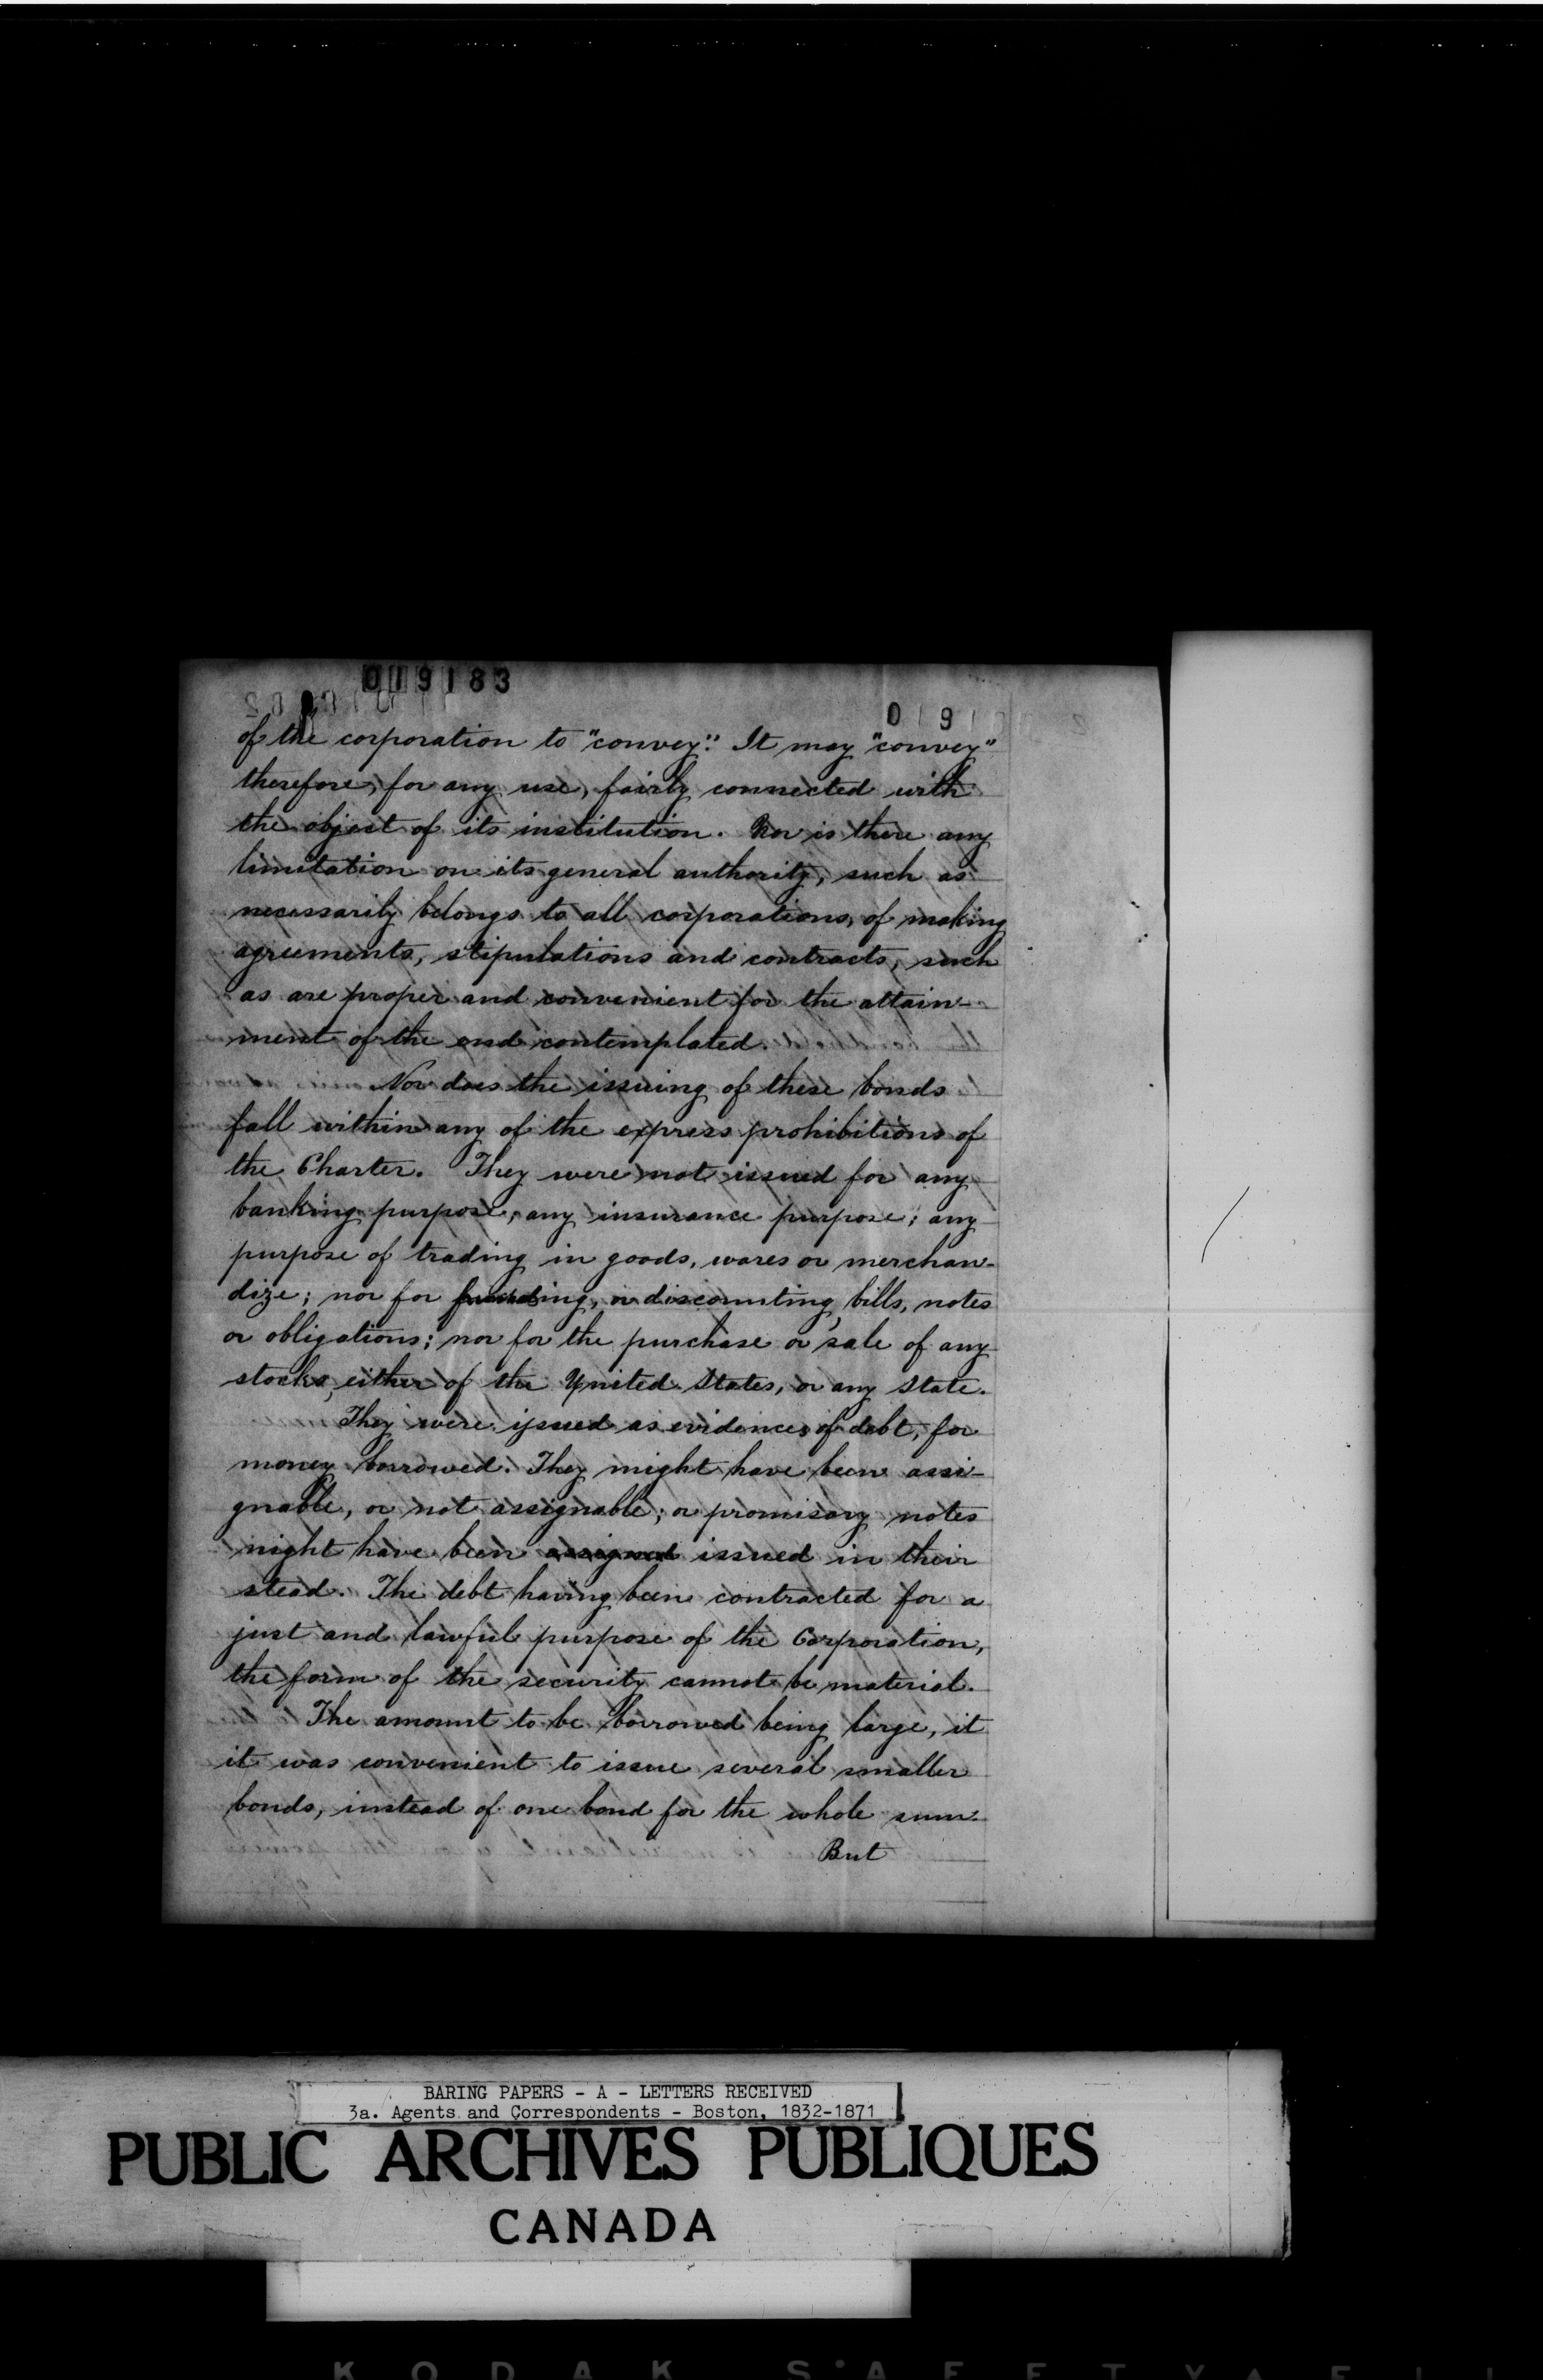 019183
0191
of the corporation to "convey". It may "convey"
therefore, for any use, fairly connected with
the object of its institution. Nor is there any
limitation on its general authority, such as
necessarily belongs to all corporations, of making
agreements, stipulations and contracts, such
as are proper and convenient for the attain-
ment of the end contemplated.
Nor does the issuing of these bonds
fall within any of the express prohibitions of
the Charter. They were not issued for any
banking purpose; any insurance purpose; any
purpose of trading in goods, wares or merchan-
dize; nor for funding, or discounting bills, notes
or obligations; nor for the purchase or sale of any
stocks, either of the United States, or any State.
They were issued as evidences of debt, for
money borrowed. They might have been assi-
gnable, or not assignable; or promisory notes
might have been assigned issued in their
stead. The debt having been contracted for a
just and lawful purpose of the Corporation,
the form of the security cannot be material.
The amount to be borrowed being large, it
it was convenient to issue several smaller
bonds, instead of one bond for the whole sum.
But
BARING PAPERS - A - LETTERS RECEIVED
3a. Agents and Correspondents - Boston, 1832-1871
PUBLIC ARCHIVES PUBLIQUES
CANADA
KODAK SAFETY FIL